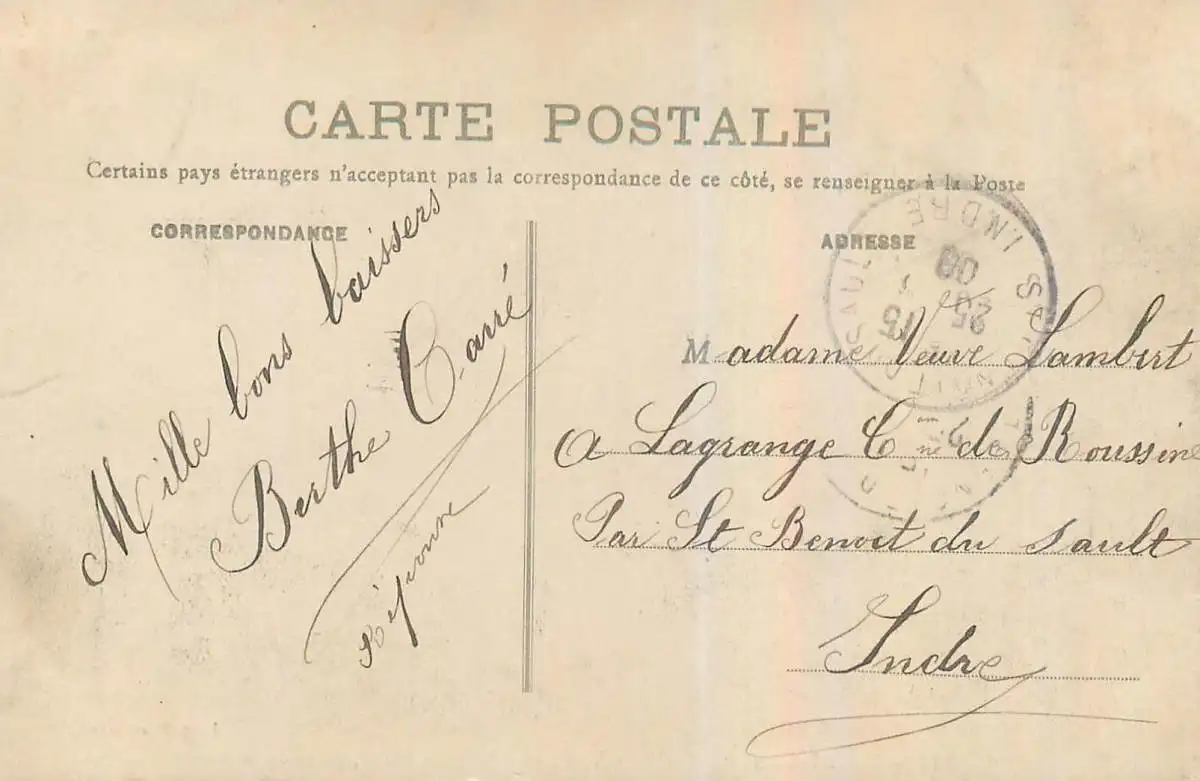 CARTE POSTALE
Certains pays étrangers n'acceptant pas la correspondance de ce côté, se renseigner à la Poste
CORRESPONDANCE
Mille bons baissers
Berthe Carré
Réponse
ADRESSE
Madame Veuve Lambert
a Lagrange Cne de Roussine
Par St Benoit du Sault
Indre
INDRE
25
08